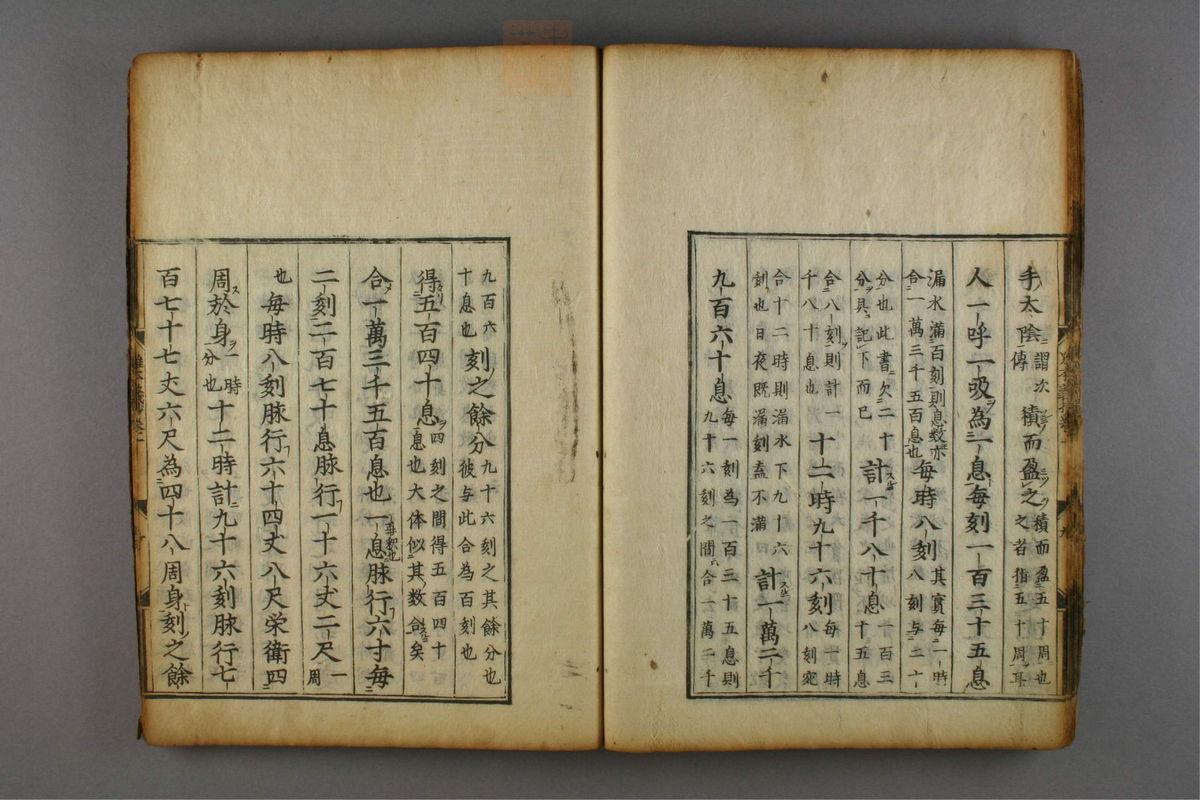 手太陰謂次傳積而盈之積而盈五十周也之者指五十周耳
人一呼一吸為一息每刻一百三十五息
漏水滿百刻則息數亦合一萬三千五百息也每時八刻其實每一時八刻与二十
分也此書欠二十分具記下而已計一千八十息一百三十五息
合八刻則計一千八十息也十二時九十六刻每一時八刻
合十二時則漏水下九十六刻也日夜既漏刻盡不滿計一萬二千
九百六十息每一刻為一百三十五息則九十六刻之間合一萬二千
九百六十息也刻之餘分九十六刻之其餘分也彼与此合為百刻也
得五百四十息四刻之間得五百四十息也大体似其数合矣
合一萬三千五百息也一息脉行六寸每
二刻二百七十息脉行一十六丈二尺一周
也每時八刻脉行六十四丈八尺栄衛四
周於身一時分也十二時計九十六刻脉行七
百七十七丈六尺為四十八周身刻之餘